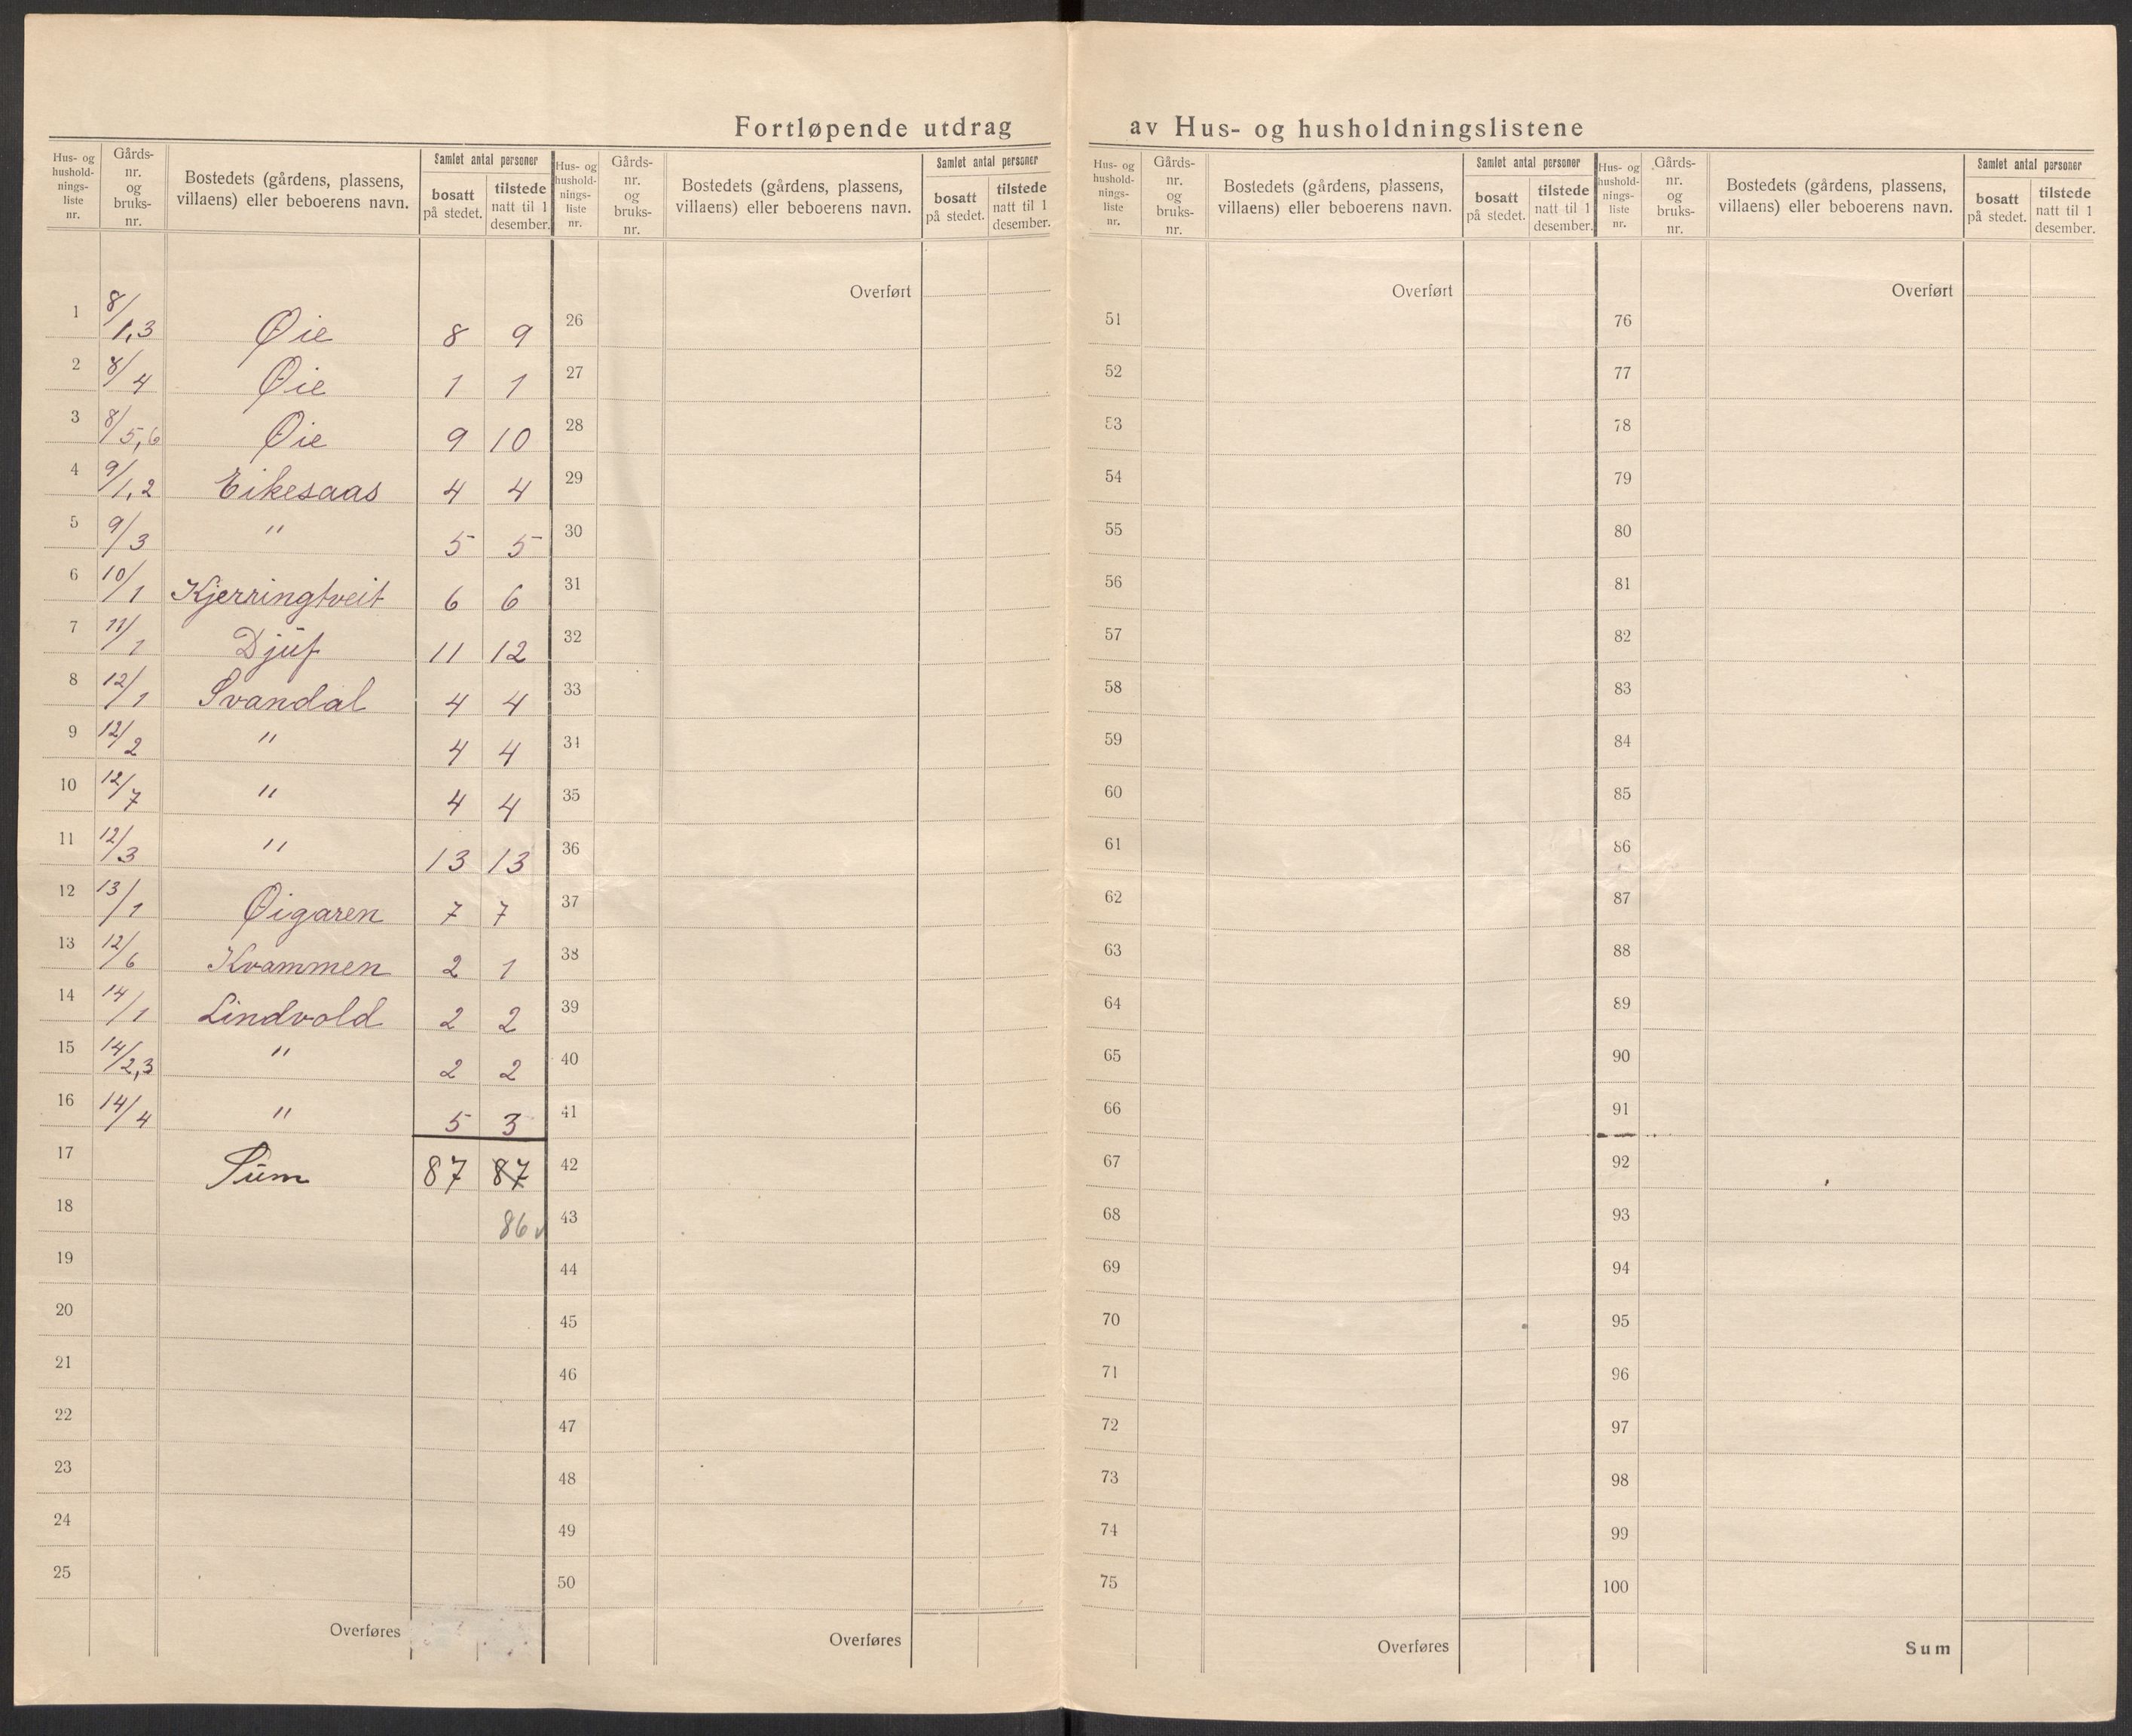 Fortløpende utdrag av Hus- og husholdningslistene
Hus- og hushold-nings-liste nr. | Gårds-nr. og bruks-nr. | Bostedets (gårdens, plassens, villaens) eller beboerens navn. | Samlet antal personer | bosatt på stedet. | tilstede natt til 1 desember.
1 8/1,3 Øie 8 9
2 8/4 Øie 1 1
3 8/5,6 Øie 9 10
4 9/1,2 Eikesaas 4 4
5 9/3 " 5 5
6 10/1 Kjerringtveit 6 6
7 11/1 Djuf 11 12
8 12/1 Svandal 4 4
9 12/2 " 4 4
10 12/7 " 4 4
11 12/3 " 13 13
12 13/1 Øigaren 7 7
13 12/6 Kvammen 2 1
14 14/1 Lindvold 2 2
15 14/2,3 " 2 2
16 14/4 " 5 3
17 Sum 87 87
18 86
19
20
21
22
23
24
25
Overføres
Hus- og hushold-nings-liste nr. | Gårds-nr. og bruks-nr. | Bostedets (gårdens, plassens, villaens) eller beboerens navn. | Samlet antal personer | bosatt på stedet. | tilstede natt til 1 desember.
Overført
26
27
28
29
30
31
32
33
34
35
36
37
38
39
40
41
42
43
44
45
46
47
48
49
50
Overføres
Hus- og hushold-nings-liste nr. | Gårds-nr. og bruks-nr. | Bostedets (gårdens, plassens, villaens) eller beboerens navn. | Samlet antal personer | bosatt på stedet. | tilstede natt til 1 desember.
Overført
51
52
53
54
55
56
57
58
59
60
61
62
63
64
65
66
67
68
69
70
71
72
73
74
75
Overføres
Hus- og hushold-nings-liste nr. | Gårds-nr. og bruks-nr. | Bostedets (gårdens, plassens, villaens) eller beboerens navn. | Samlet antal personer | bosatt på stedet. | tilstede natt til 1 desember.
Overført
76
77
78
79
80
81
82
83
84
85
86
87
88
89
90
91
92
93
94
95
96
97
98
99
100
Sum